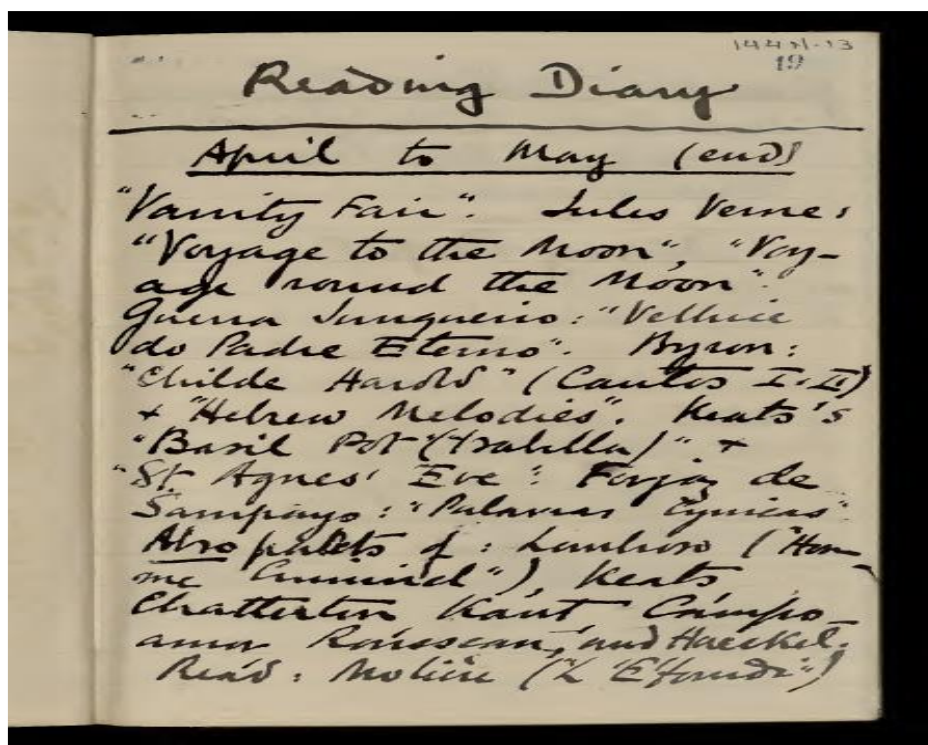 144N-13
19
Reading Diary
April to May (end)
"Vanity Fair". Jules Verne:
"Voyage to the Moon", "Voy-
age round the Moon".
Guerra Junqueiro: "Velhice
do Padre Eterno". Byron:
"Childe Harold" (Cantos I. II)
+ "Hebrew Melodies". Keats's
"Basil Pot (Isabella)" +
"St Agnes' Eve". Forjaz de
Sampayo: "Palavras Cynicas".
Also parts of: Lombroso ("Hom-
me Criminel"), Keats
Chatterton Kant Campo
amor Rousseau, and Haeckel.
Read: Molière ("L'Étourdi")